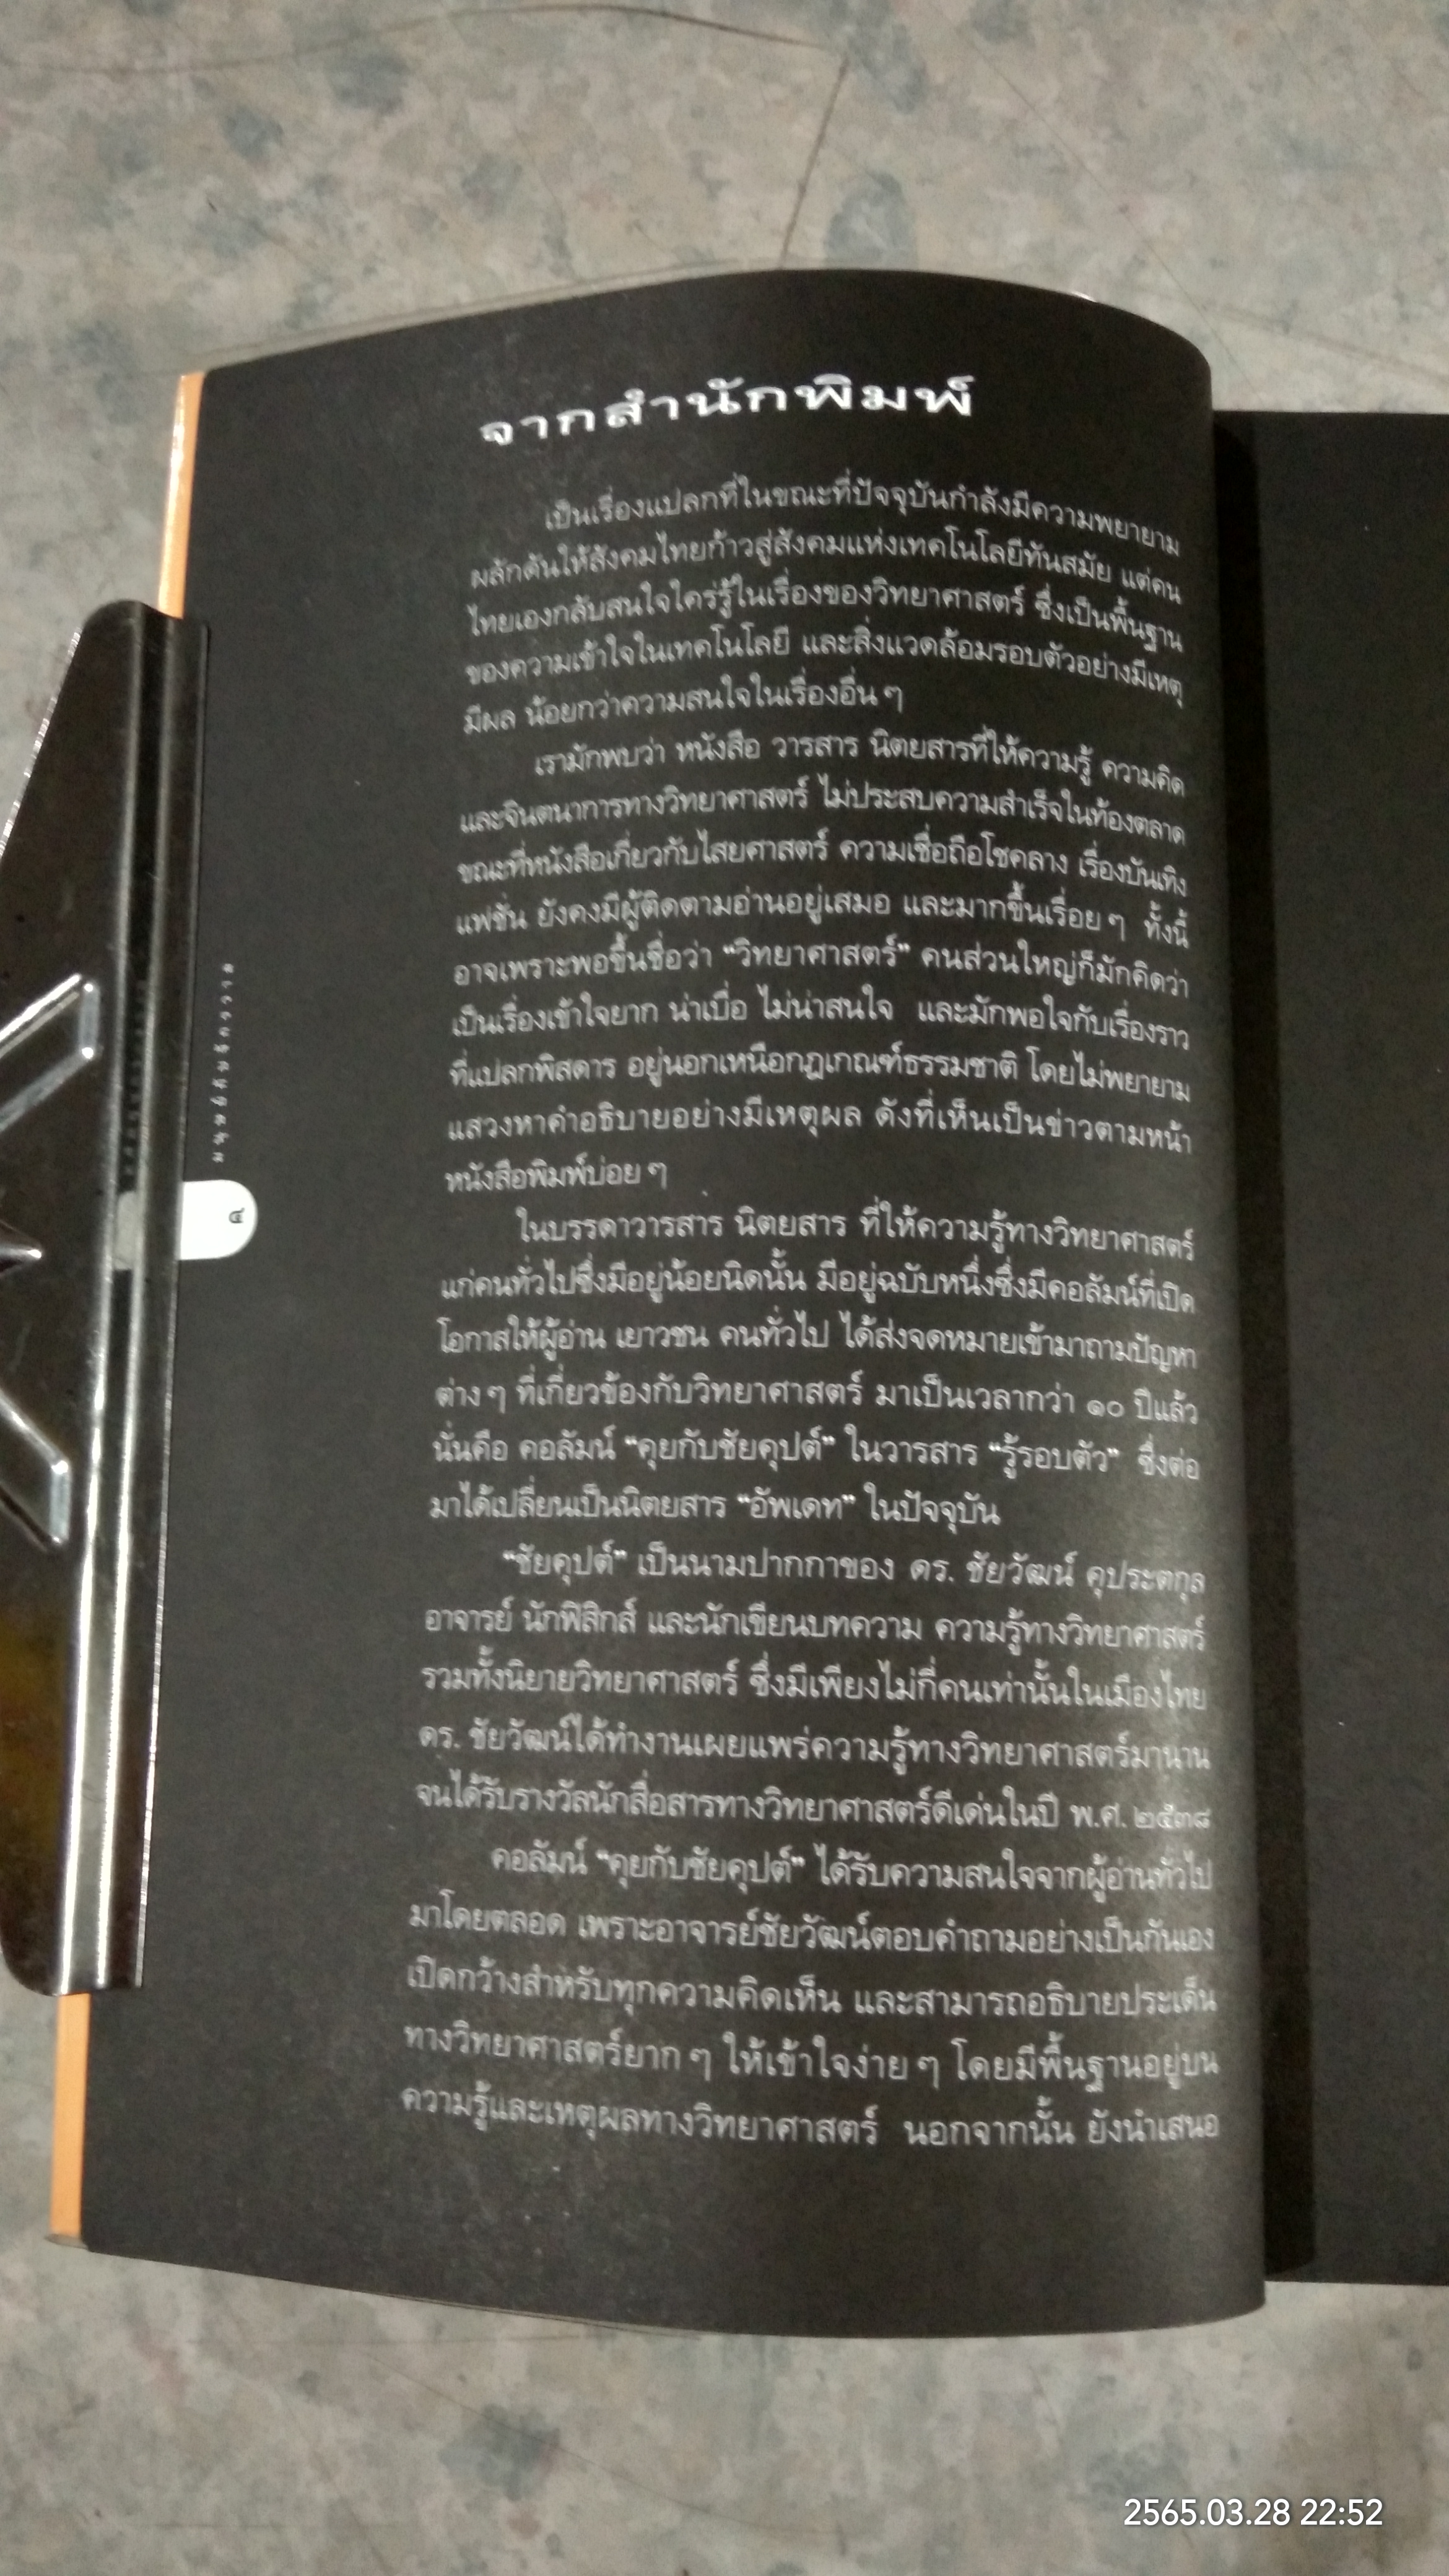 จากสำนักพิมพ์
เป็นเรื่องแปลกที่ในขณะที่ปัจจุบันกำลังมีความพยายาม
ผลักดันให้สังคมไทยก้าวสู่สังคมแห่งเทคโนโลยีทันสมัย แต่คน
ไทยเองกลับสนใจใคร่รู้ในเรื่องของวิทยาศาสตร์ ซึ่งเป็นพื้นฐาน
ของความเข้าใจในเทคโนโลยี และสิ่งแวดล้อมรอบตัวอย่างมีเหตุ
มีผล น้อยกว่าความสนใจในเรื่องอื่น ๆ
เรามักพบว่า หนังสือ วารสาร นิตยสารที่ให้ความรู้ ความคิด
และจินตนาการทางวิทยาศาสตร์ ไม่ประสบความสำเร็จในท้องตลาด
ขณะที่หนังสือเกี่ยวกับไสยศาสตร์ ความเชื่อถือโชคลาง เรื่องบันเทิง
แฟชั่น ยังคงมีผู้ติดตามอ่านอยู่เสมอ และมากขึ้นเรื่อย ๆ ทั้งนี้
อาจเพราะพอขึ้นชื่อว่า “วิทยาศาสตร์” คนส่วนใหญ่ก็มักคิดว่า
เป็นเรื่องเข้าใจยาก น่าเบื่อ ไม่น่าสนใจ และมักพอใจกับเรื่องราว
ที่แปลกพิสดาร อยู่นอกเหนือกฎเกณฑ์ธรรมชาติ โดยไม่พยายาม
แสวงหาคำอธิบายอย่างมีเหตุผล ดังที่เห็นเป็นข่าวตามหน้า
หนังสือพิมพ์บ่อย ๆ
ในบรรดาวารสาร นิตยสาร ที่ให้ความรู้ทางวิทยาศาสตร์
แก่คนทั่วไปซึ่งมีอยู่น้อยนิดนั้น มีอยู่ฉบับหนึ่งซึ่งมีคอลัมน์ที่เปิด
โอกาสให้ผู้อ่าน เยาวชน คนทั่วไป ได้ส่งจดหมายเข้ามาถามปัญหา
ต่าง ๆ ที่เกี่ยวข้องกับวิทยาศาสตร์ มาเป็นเวลากว่า ๑๐ ปีแล้ว
นั่นคือ คอลัมน์ “คุยกับชัยคุปต์” ในวารสาร “รู้รอบตัว” ซึ่งต่อ
มาได้เปลี่ยนเป็นนิตยสาร “อัพเดท” ในปัจจุบัน
“ชัยคุปต์” เป็นนามปากกาของ ดร. ชัยวัฒน์ คุประตกุล
อาจารย์ นักฟิสิกส์ และนักเขียนบทความ ความรู้ทางวิทยาศาสตร์
รวมทั้งนิยายวิทยาศาสตร์ ซึ่งมีเพียงไม่กี่คนเท่านั้นในเมืองไทย
ดร. ชัยวัฒน์ได้ทำงานเผยแพร่ความรู้ทางวิทยาศาสตร์มานาน
จนได้รับรางวัลนักสื่อสารทางวิทยาศาสตร์ดีเด่นในปี พ.ศ. ๒๕๓๘
คอลัมน์ “คุยกับชัยคุปต์” ได้รับความสนใจจากผู้อ่านทั่วไป
มาโดยตลอด เพราะอาจารย์ชัยวัฒน์ตอบคำถามอย่างเป็นกันเอง
เปิดกว้างสำหรับทุกความคิดเห็น และสามารถอธิบายประเด็น
ทางวิทยาศาสตร์ยาก ๆ ให้เข้าใจง่าย ๆ โดยมีพื้นฐานอยู่บน
ความรู้และเหตุผลทางวิทยาศาสตร์ นอกจากนั้น ยังนำเสนอ
2565.03.28 22:52